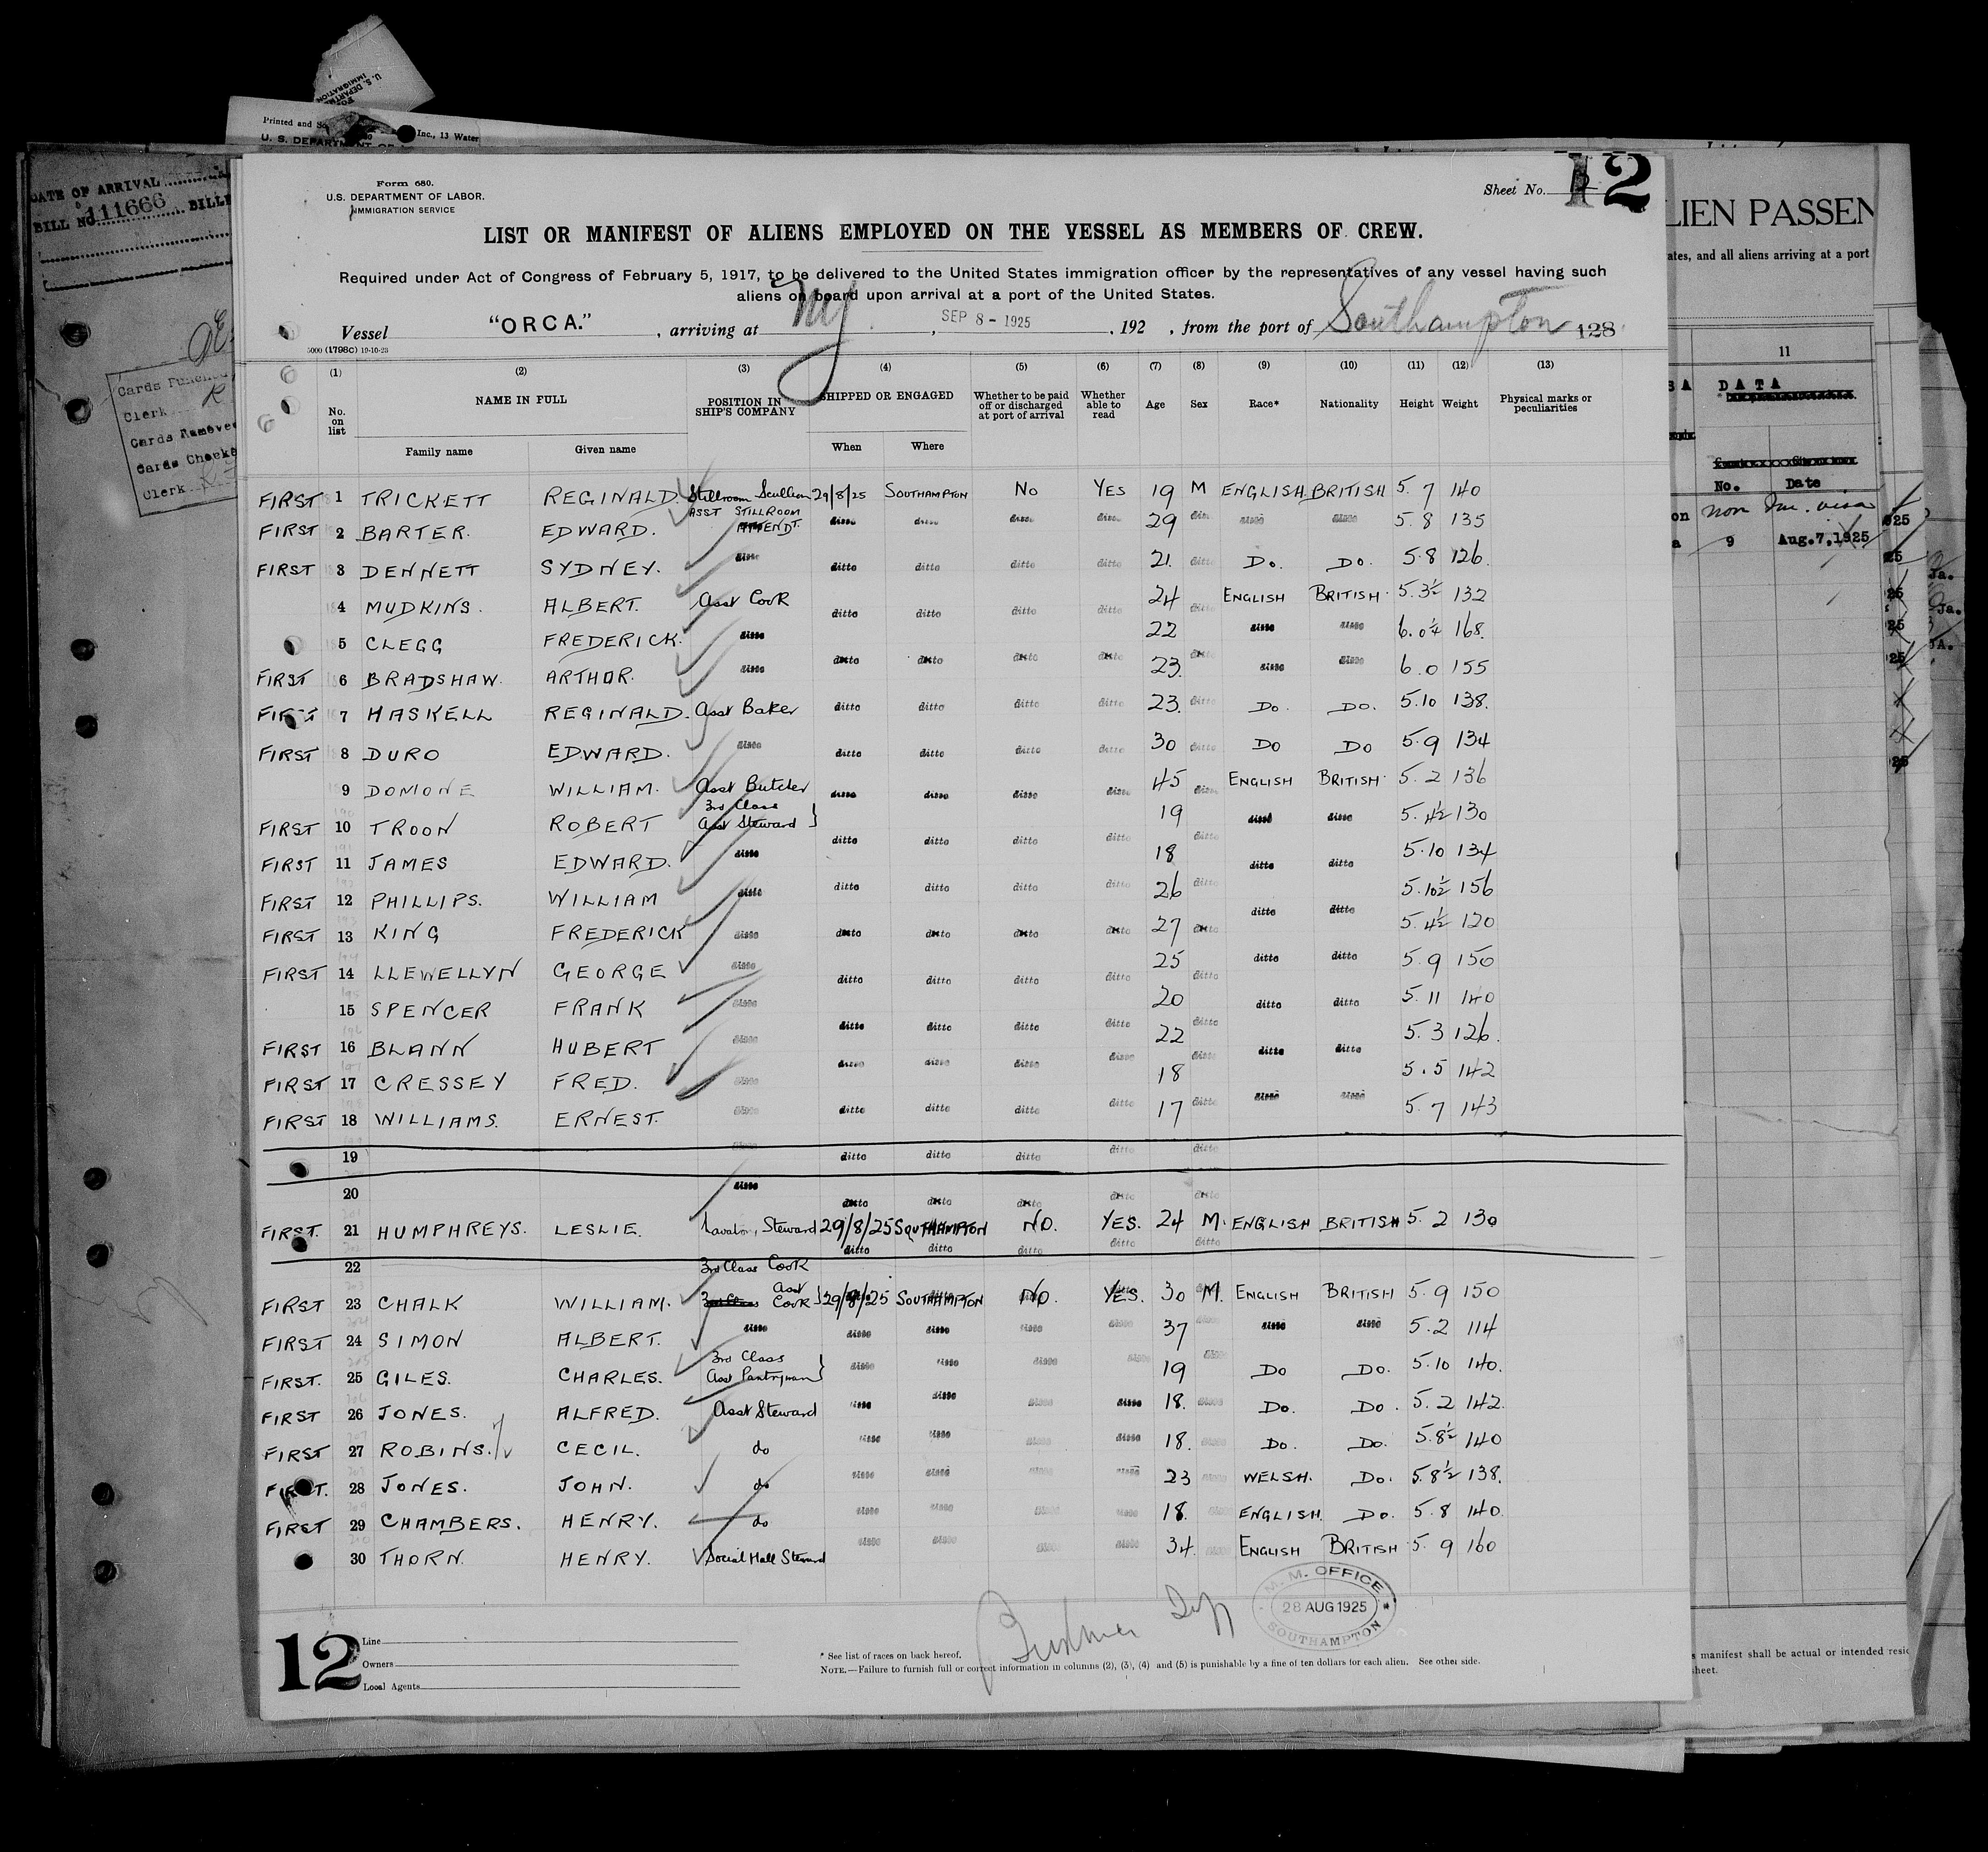 U. S. DEPARTMENT
IMMIGRATION
Printed and
Inc., 13 Water
U. S. DEPARTMENT OF
DATE OF ARRIVAL
BILL NO. 111666 BILL
Cards Punched
Clerk
Cards Removed
Cards Checked
Clerk
Form 680.
U.S. DEPARTMENT OF LABOR.
IMMIGRATION SERVICE
Sheet No. 12
LIST OR MANIFEST OF ALIENS EMPLOYED ON THE VESSEL AS MEMBERS OF CREW.
Required under Act of Congress of February 5, 1917, to be delivered to the United States immigration officer by the representatives of any vessel having such
aliens on board upon arrival at a port of the United States.
Vessel "ORCA." , arriving at NY , SEP 8 - 1925 , 192 , from the port of Southampton 128
5000 (1798C) 19-10-23
(1) (2) (3) (4) (5) (6) (7) (8) (9) (10) (11) (12) (13)
No. on list NAME IN FULL Family name Given name POSITION IN SHIP'S COMPANY SHIPPED OR ENGAGED When Where Whether to be paid off or discharged at port of arrival Whether able to read Age Sex Race* Nationality Height Weight Physical marks or peculiarities
FIRST 1 TRICKETT REGINALD. Stillroom Scullion 29/8/25 SOUTHAMPTON NO YES 19 M ENGLISH BRITISH 5. 7 140
FIRST 2 BARTER. EDWARD. ASST STILLROOM ATTENDT. ditto ditto ditto ditto 29 ditto ditto ditto 5. 8 135
FIRST 3 DENNETT SYDNEY. ditto ditto ditto ditto ditto 21. ditto Do. Do. 5.8 126.
4 MUDKINS. ALBERT. Asst Cook ditto ditto ditto ditto 24 ditto ENGLISH BRITISH. 5.3½ 132
5 CLEGG FREDERICK. ditto ditto ditto ditto ditto 22 ditto ditto ditto 6.0¼ 168.
FIRST 6 BRADSHAW. ARTHOR. ditto 23. ditto ditto 6.0 155
FIRST 7 HASKELL REGINALD. Asst Baker ditto ditto ditto ditto 23. ditto Do. Do. 5.10 138.
FIRST 8 DURO EDWARD. ditto ditto ditto ditto ditto 30 ditto Do Do 5.9 134
9 DOMONE WILLIAM. Asst Butcher ditto ditto ditto ditto 45 ditto ENGLISH BRITISH. 5. 2 136
FIRST 10 TROON ROBERT 3rd Class Asst Steward } ditto ditto ditto ditto 19 ditto ditto ditto 5. 4½ 130
FIRST 11 JAMES EDWARD. ditto ditto ditto ditto ditto 18 ditto ditto ditto 5.10 134
FIRST 12 PHILLIPS. WILLIAM ditto 26 ditto ditto 5.10½ 156
FIRST 13 KING FREDERICK ditto ditto ditto ditto ditto 27 ditto 5. 4½ 120
FIRST 14 LLEWELLYN GEORGE ditto ditto ditto ditto ditto 25 ditto ditto ditto 5. 9 150
15 SPENCER FRANK ditto ditto ditto ditto ditto 20 ditto ditto ditto 5. 11 140
FIRST 16 BLANN HUBERT ditto ditto ditto ditto ditto 22 ditto ditto ditto 5. 3 126.
FIRST 17 CRESSEY FRED. ditto 18 ditto ditto 5. 5 142
FIRST 18 WILLIAMS. ERNEST. ditto ditto ditto ditto ditto 17 ditto 5. 7 143
19 ditto ditto ditto ditto ditto ditto
20 ditto ditto ditto ditto ditto ditto
FIRST. 21 HUMPHREYS. LESLIE. Steward 29/8/25 SOUTHAMPTON NO. YES. 24 M. ENGLISH BRITISH 5. 2 130
22 3rd Class Cook ditto ditto ditto ditto ditto
FIRST 23 CHALK WILLIAM. 3rd Class Asst Cook } 29/8/25 SOUTHAMPTON NO. YES. 30 M. ENGLISH BRITISH 5. 9 150
FIRST 24 SIMON ALBERT. ditto ditto ditto ditto ditto 37 ditto ditto ditto 5.2 114
FIRST. 25 GILES. CHARLES. 3rd Class Asst Pantryman } ditto ditto ditto ditto 19 ditto Do Do. 5.10 140.
FIRST 26 JONES. ALFRED. Asst Steward ditto ditto ditto ditto 18. ditto Do. Do. 5. 2 142.
FIRST 27 ROBINS. CECIL. do ditto ditto ditto ditto 18. ditto Do. Do. 5.8½ 140
FIRST. 28 JONES. JOHN. do ditto ditto ditto ditto 23 ditto WELSH. Do. 5.8½ 138.
FIRST 29 CHAMBERS. HENRY. do ditto ditto ditto ditto 18. ditto ENGLISH. Do. 5. 8 140.
30 THORN. HENRY. Social Hall Steward ditto ditto ditto ditto 34. ditto ENGLISH BRITISH 5. 9 160
M. M. OFFICE
28 AUG 1925
SOUTHAMPTON
12
Line
Owners
Local Agents
* See list of races on back hereof.
NOTE.—Failure to furnish full or correct information in columns (2), (3), (4) and (5) is punishable by a fine of ten dollars for each alien. See other side.
LIEN PASSEN
ates, and all aliens arriving at a port
11
S A DATA
No. Date
non Im. visa
9 Aug.7,1925
s manifest shall be actual or intended resid
sheet.